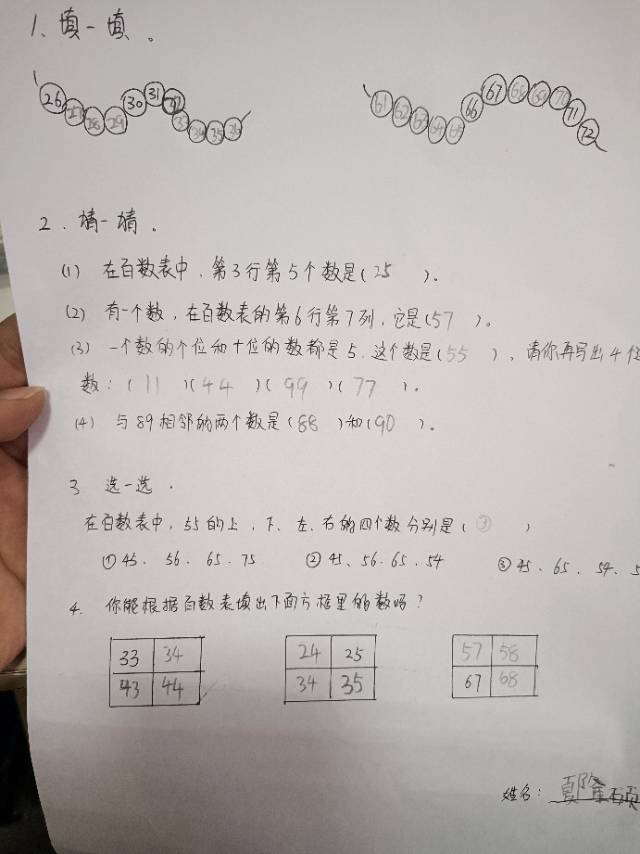 1、填一填。
26 27 28 29 30 31 32 33 34 35 36
61 62 63 64 65 66 67 68 69 70 71 72
2.猜一猜。
(1) 在百数表中,第3行第5个数是(25)。
(2) 有一个数,在百数表的第6行第7列,它是(57)。
(3) 一个数的个位和十位的数都是5.这个数是(55),请你再写出4个
数:(11)(44)(99)(77)。
(4) 与89相邻的两个数是(88)和(90)。
3 选一选.
在百数表中,55的上,下、左、右的四个数分别是(③)
①45. 56. 65. 75 ②45、56.65.54 ③45.65.54.5
4. 你能根据百数表填出下面方框里的数吗?
33 34 24 25 57 58
43 44 34 35 67 68
姓名: